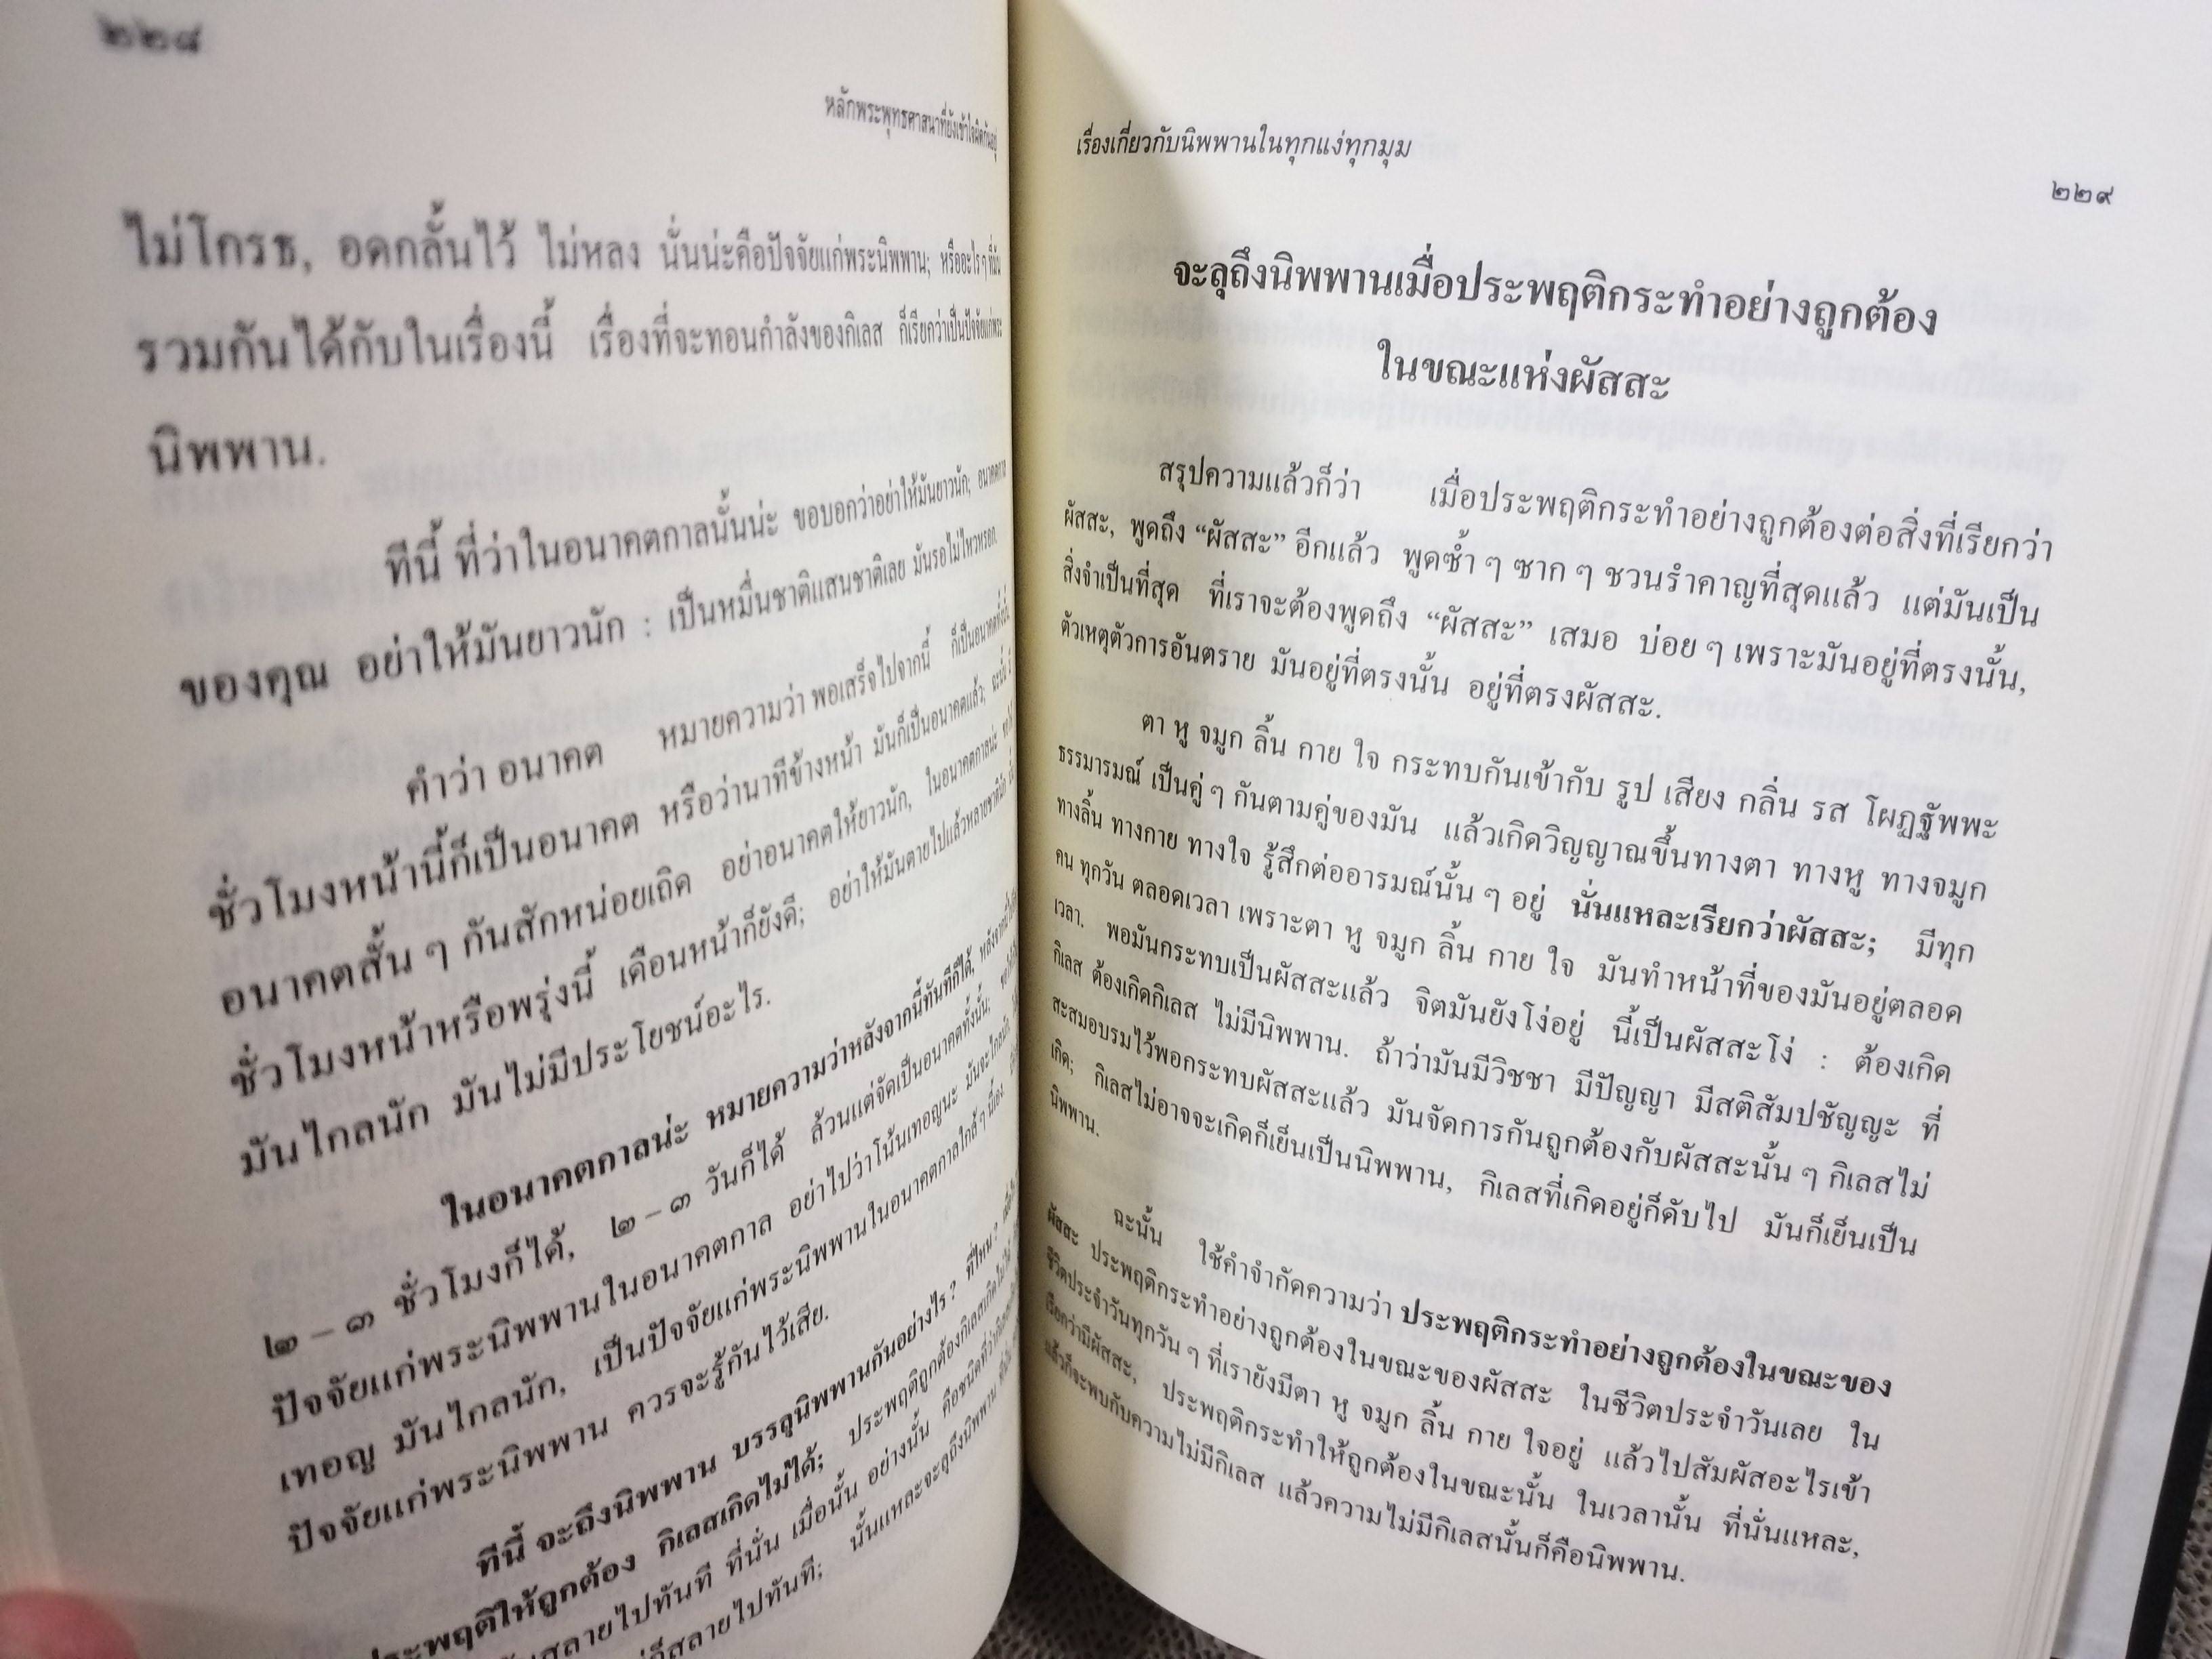 ๒๒๘
หลักพระพุทธศาสนาที่ยังเข้าใจผิดกันอยู่
ไม่โกรธ, อดกลั้นไว้ ไม่หลง นั่นน่ะคือปัจจัยแก่พระนิพพาน; หรืออะไรๆ ที่มัน
รวมกันได้กับในเรื่องนี้ เรื่องที่จะทอนกำลังของกิเลส ก็เรียกว่าเป็นปัจจัยแก่พระ
นิพพาน.
ทีนี้ ที่ว่าในอนาคตกาลนั้นน่ะ ขอบอกว่าอย่าให้มันยาวนัก; อนาคตกาล
ของคุณ อย่าให้มันยาวนัก : เป็นหมื่นชาติแสนชาติเลย มันรอไม่ไหวหรอก.
คำว่า อนาคต หมายความว่า พอเสร็จไปจากนี้ ก็เป็นอนาคตทั้งนั้น
ชั่วโมงหน้านี้ก็เป็นอนาคต หรือว่านาทีข้างหน้า มันก็เป็นอนาคตแล้ว; ฉะนั้น
อนาคตสั้น ๆ กันสักหน่อยเถิด อย่าอนาคตให้ยาวนัก, ในอนาคตกาลน่ะ
ชั่วโมงหน้าหรือพรุ่งนี้ เดือนหน้าก็ยังดี; อย่าให้มันตายไปแล้วหลายชาตินัก
มันไกลนัก มันไม่มีประโยชน์อะไร.
ในอนาคตกาลน่ะ หมายความว่าหลังจากนี้ทันทีก็ได้, หลังจากนี้
๒ – ๓ ชั่วโมงก็ได้, ๒ – ๓ วันก็ได้ ล้วนแต่จัดเป็นอนาคตทั้งนั้น;
ปัจจัยแก่พระนิพพานในอนาคตกาล อย่าไปว่าโน้นเทอญนะ มันจะไกลนัก
เทอญ มันไกลนัก, เป็นปัจจัยแก่พระนิพพานในอนาคตกาลใกล้ ๆ นี้เอง
ปัจจัยแก่พระนิพพาน ควรจะรู้กันไว้เสีย.
ทีนี้ จะถึงนิพพาน บรรลุนิพพานกันอย่างไร? ที่ไหน?
ประพฤติให้ถูกต้อง กิเลสเกิดไม่ได้; ประพฤติถูกต้องกิเลสเกิดไม่ได้
สลายไปทันที ที่นั่น เมื่อนั้น อย่างนั้น คือชนิดที่ว่า
สลายไปทันที; นั้นแหละจะลุถึงนิพพาน
เรื่องเกี่ยวกับนิพพานในทุกแง่ทุกมุม
๒๒๙
จะลุถึงนิพพานเมื่อประพฤติกระทำอย่างถูกต้อง
ในขณะแห่งผัสสะ
สรุปความแล้วก็ว่า เมื่อประพฤติกระทำอย่างถูกต้องต่อสิ่งที่เรียกว่า
ผัสสะ, พูดถึง “ผัสสะ” อีกแล้ว พูดซ้ำ ๆ ซาก ๆ ชวนรำคาญที่สุดแล้ว แต่มันเป็น
สิ่งจำเป็นที่สุด ที่เราจะต้องพูดถึง “ผัสสะ” เสมอ บ่อย ๆ เพราะมันอยู่ที่ตรงนั้น,
ตัวเหตุตัวการอันตราย มันอยู่ที่ตรงนั้น อยู่ที่ตรงผัสสะ.
ตา หู จมูก ลิ้น กาย ใจ กระทบกันเข้ากับ รูป เสียง กลิ่น รส โผฏฐัพพะ
ธรรมารมณ์ เป็นคู่ ๆ กันตามคู่ของมัน แล้วเกิดวิญญาณขึ้นทางตา ทางหู ทางจมูก
ทางลิ้น ทางกาย ทางใจ รู้สึกต่ออารมณ์นั้น ๆ อยู่ นั่นแหละเรียกว่าผัสสะ; มีทุก
คน ทุกวัน ตลอดเวลา เพราะตา หู จมูก ลิ้น กาย ใจ มันทำหน้าที่ของมันอยู่ตลอด
เวลา. พอมันกระทบเป็นผัสสะแล้ว จิตมันยังโง่อยู่ นี้เป็นผัสสะโง่ : ต้องเกิด
กิเลส ต้องเกิดกิเลส ไม่มีนิพพาน. ถ้าว่ามันมีวิชชา มีปัญญา มีสติสัมปชัญญะ ที่
สะสมอบรมไว้พอกระทบผัสสะแล้ว มันจัดการกันถูกต้องกับผัสสะนั้น ๆ กิเลสไม่
เกิด; กิเลสไม่อาจจะเกิดก็เย็นเป็นนิพพาน, กิเลสที่เกิดอยู่ก็ดับไป มันก็เย็นเป็น
นิพพาน.
ฉะนั้น ใช้คำจำกัดความว่า ประพฤติกระทำอย่างถูกต้องในขณะของ
ผัสสะ ประพฤติกระทำอย่างถูกต้องในขณะของผัสสะ ในชีวิตประจำวันเลย ใน
ชีวิตประจำวันทุกวัน ๆ ที่เรายังมีตา หู จมูก ลิ้น กาย ใจอยู่ แล้วไปสัมผัสอะไรเข้า
เรียกว่ามีผัสสะ, ประพฤติกระทำให้ถูกต้องในขณะนั้น ในเวลานั้น ที่นั่นแหละ,
แล้วก็จะพบกับความไม่มีกิเลส แล้วความไม่มีกิเลสนั้นก็คือนิพพาน.